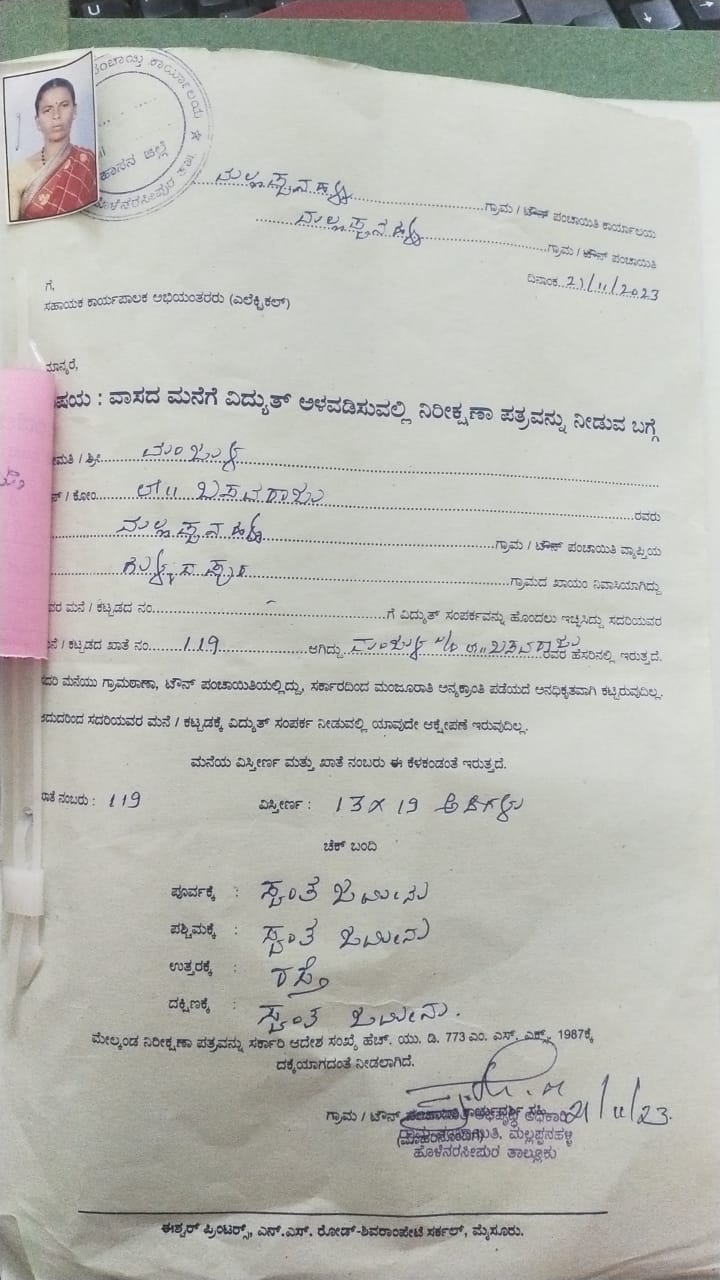 ಪಂಚಾಯ್ತಿ ಕಾರ್ಯಾಲಯ ★
ಹಾಸನ ಜಿಲ್ಲೆ
ಹೊಳೆನರಸೀಪುರ ತಾ||
ಮಲ್ಲಪ್ಪನಹಳ್ಳಿ ಗ್ರಾಮ / ಟೌನ್ ಪಂಚಾಯಿತಿ ಕಾರ್ಯಾಲಯ
ಮಲ್ಲಪ್ಪನಹಳ್ಳಿ ಗ್ರಾಮ / ಟೌನ್ ಪಂಚಾಯಿತಿ
ದಿನಾಂಕ 21/11/2023
ಗೆ,
ಸಹಾಯಕ ಕಾರ್ಯಪಾಲಕ ಅಭಿಯಂತರರು (ಎಲೆಕ್ಟ್ರಿಕಲ್)
ಮಾನ್ಯರೆ,
ಷಯ : ವಾಸದ ಮನೆಗೆ ವಿದ್ಯುತ್ ಅಳವಡಿಸುವಲ್ಲಿ ನಿರೀಕ್ಷಣಾ ಪತ್ರವನ್ನು ನೀಡುವ ಬಗ್ಗೆ
ಮತಿ / ಶ್ರೀ ಮಂಜುಳ
ನ್ / ಕೋಂ ಲೇ|| ಬಸವರಾಜು ರವರು
ಮಲ್ಲಪ್ಪನಹಳ್ಳಿ ಗ್ರಾಮ / ಟೌನ್ ಪಂಚಾಯಿತಿ ವ್ಯಾಪ್ತಿಯ
ಗ್ರಾಮದ ಖಾಯಂ ನಿವಾಸಿಯಾಗಿದ್ದು
ವರ ಮನೆ / ಕಟ್ಟಡದ ನಂ. - ಗೆ ವಿದ್ಯುತ್ ಸಂಪರ್ಕವನ್ನು ಹೊಂದಲು ಇಚ್ಛಿಸಿದ್ದು ಸದರಿಯವರ
ನೆ / ಕಟ್ಟಡದ ಖಾತೆ ನಂ. 119 ಆಗಿದ್ದು ಮಂಜುಳ ಲೇ|| ಬಸವರಾಜು ರವರ ಹೆಸರಿನಲ್ಲಿ ಇರುತ್ತದೆ.
ದರಿ ಮನೆಯು ಗ್ರಾಮಠಾಣಾ, ಟೌನ್ ಪಂಚಾಯಿತಿಯಲ್ಲಿದ್ದು, ಸರ್ಕಾರದಿಂದ ಮಂಜೂರಾತಿ ಅನ್ಯಕ್ರಾಂತಿ ಪಡೆಯದೆ ಅನಧಿಕೃತವಾಗಿ ಕಟ್ಟಿರುವುದಿಲ್ಲ.
ಆದುದರಿಂದ ಸದರಿಯವರ ಮನೆ / ಕಟ್ಟಡಕ್ಕೆ ವಿದ್ಯುತ್ ಸಂಪರ್ಕ ನೀಡುವಲ್ಲಿ ಯಾವುದೇ ಆಕ್ಷೇಪಣೆ ಇರುವುದಿಲ್ಲ.
ಮನೆಯ ವಿಸ್ತೀರ್ಣ ಮತ್ತು ಖಾತೆ ನಂಬರು ಈ ಕೆಳಕಂಡಂತೆ ಇರುತ್ತದೆ.
ಖಾತೆ ನಂಬರು : 119 ವಿಸ್ತೀರ್ಣ : 13 X 19 ಅಡಿಗಳು
ಚೆಕ್ ಬಂದಿ
ಪೂರ್ವಕ್ಕೆ : ಸ್ವಂತ ಜಮೀನು
ಪಶ್ಚಿಮಕ್ಕೆ : ಸ್ವಂತ ಜಮೀನು
ಉತ್ತರಕ್ಕೆ : ರಸ್ತೆ
ದಕ್ಷಿಣಕ್ಕೆ : ಸ್ವಂತ ಜಮೀನು.
ಮೇಲ್ಕಂಡ ನಿರೀಕ್ಷಣಾ ಪತ್ರವನ್ನು ಸರ್ಕಾರಿ ಆದೇಶ ಸಂಖ್ಯೆ ಹೆಚ್. ಯು. ಡಿ. 773 ಎಂ. ಎಸ್. ಎಕ್ಸ್. 1987ಕ್ಕೆ
ದಕ್ಕೆಯಾಗದಂತೆ ನೀಡಲಾಗಿದೆ.
ಗ್ರಾಮ / ಟೌನ್ 21/11/23.
ಮಲ್ಲಪ್ಪನಹಳ್ಳಿ
ಹೊಳೆನರಸೀಪುರ ತಾಲ್ಲೂಕು
ಈಶ್ವರ್ ಪ್ರಿಂಟರ್ಸ್, ಎನ್.ಎಸ್. ರೋಡ್-ಶಿವರಾಂಪೇಟೆ ಸರ್ಕಲ್, ಮೈಸೂರು.